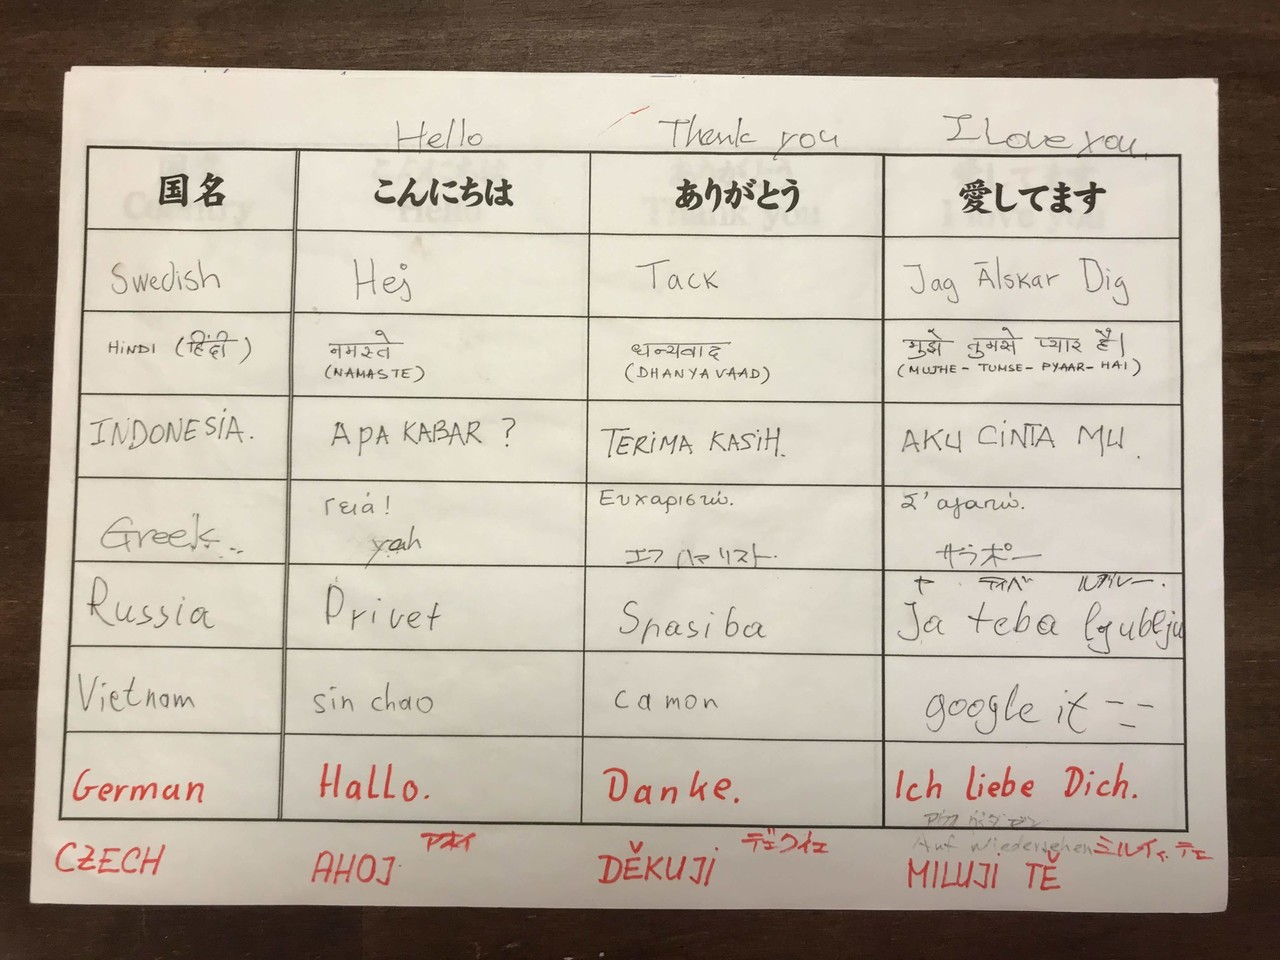 Hello Thank you I Love you.
国名 こんにちは ありがとう 愛してます
Swedish Hej Tack Jag Älskar Dig
HINDI (हिंदी) नमस्ते धन्यवाद मुझे तुमसे प्यार है।
(NAMASTE) (DHANYAVAAD) (MUJHE - TUMSE - PYAAR - HAI)
INDONESIA. APA KABAR ? TERIMA KASIH. AKU CINTA MU.
Γειά! Ευχαριστώ. Σ' αγαπώ.
Greek... yah エフハリスト. サラポー
ヤ
Russia Privet Spasiba Ja teba ljublju
Vietnam sin chao camon google it
German Hallo. Danke. Ich liebe Dich.
Auf Wiedersehen
アホイ デェクイェ ミルイィ テェ
CZECH AHOJ DĚKUJI MILUJI TĚ